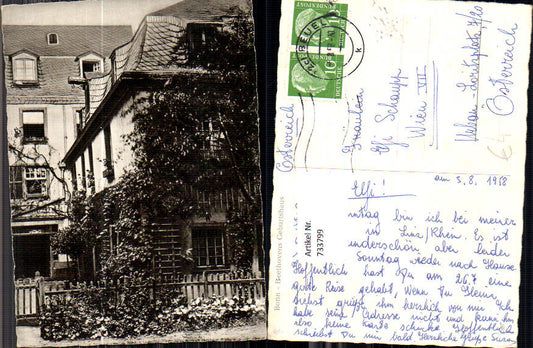 Bonn - Beethovens Geburtshaus
Artikel Nr.
733799
DEUTSCHE BUNDESPOST
10
10
Österreich
Fräulein
Elfi
Wien VII
Urban-Loritzplatz
Österreich
€4
am 5.8.1958
Elfi!
bin ich bei meiner
in Linz/Rhein. Es ist
aber leider
Sonntag wieder nach Hause
Hoffentlich hast Du am 26.7. eine
gute Reise gehabt. Wenn Du
siehst grüße ihn herzlich von mir. Ich
habe seine Adresse nicht und kann ihm
also keine Karte schicken. Hoffentlich
schreibst Du mir bald. Herzliche Grüße